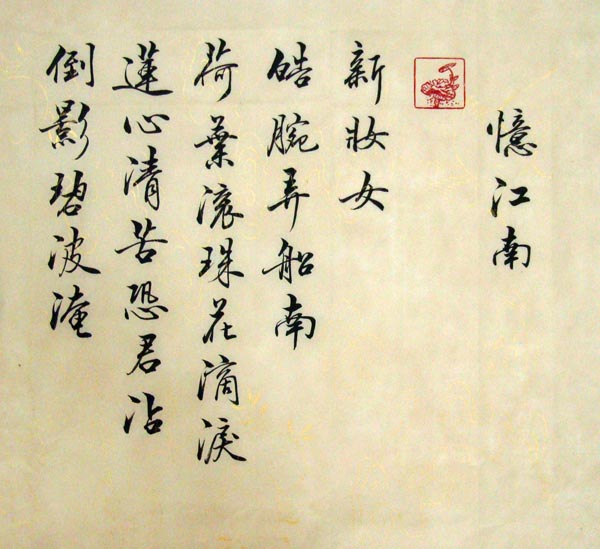 憶江南
新妝女
皓腕弄船南
荷葉滾珠花滴淚
蓮心清苦恐君沾
倒影碧波淹